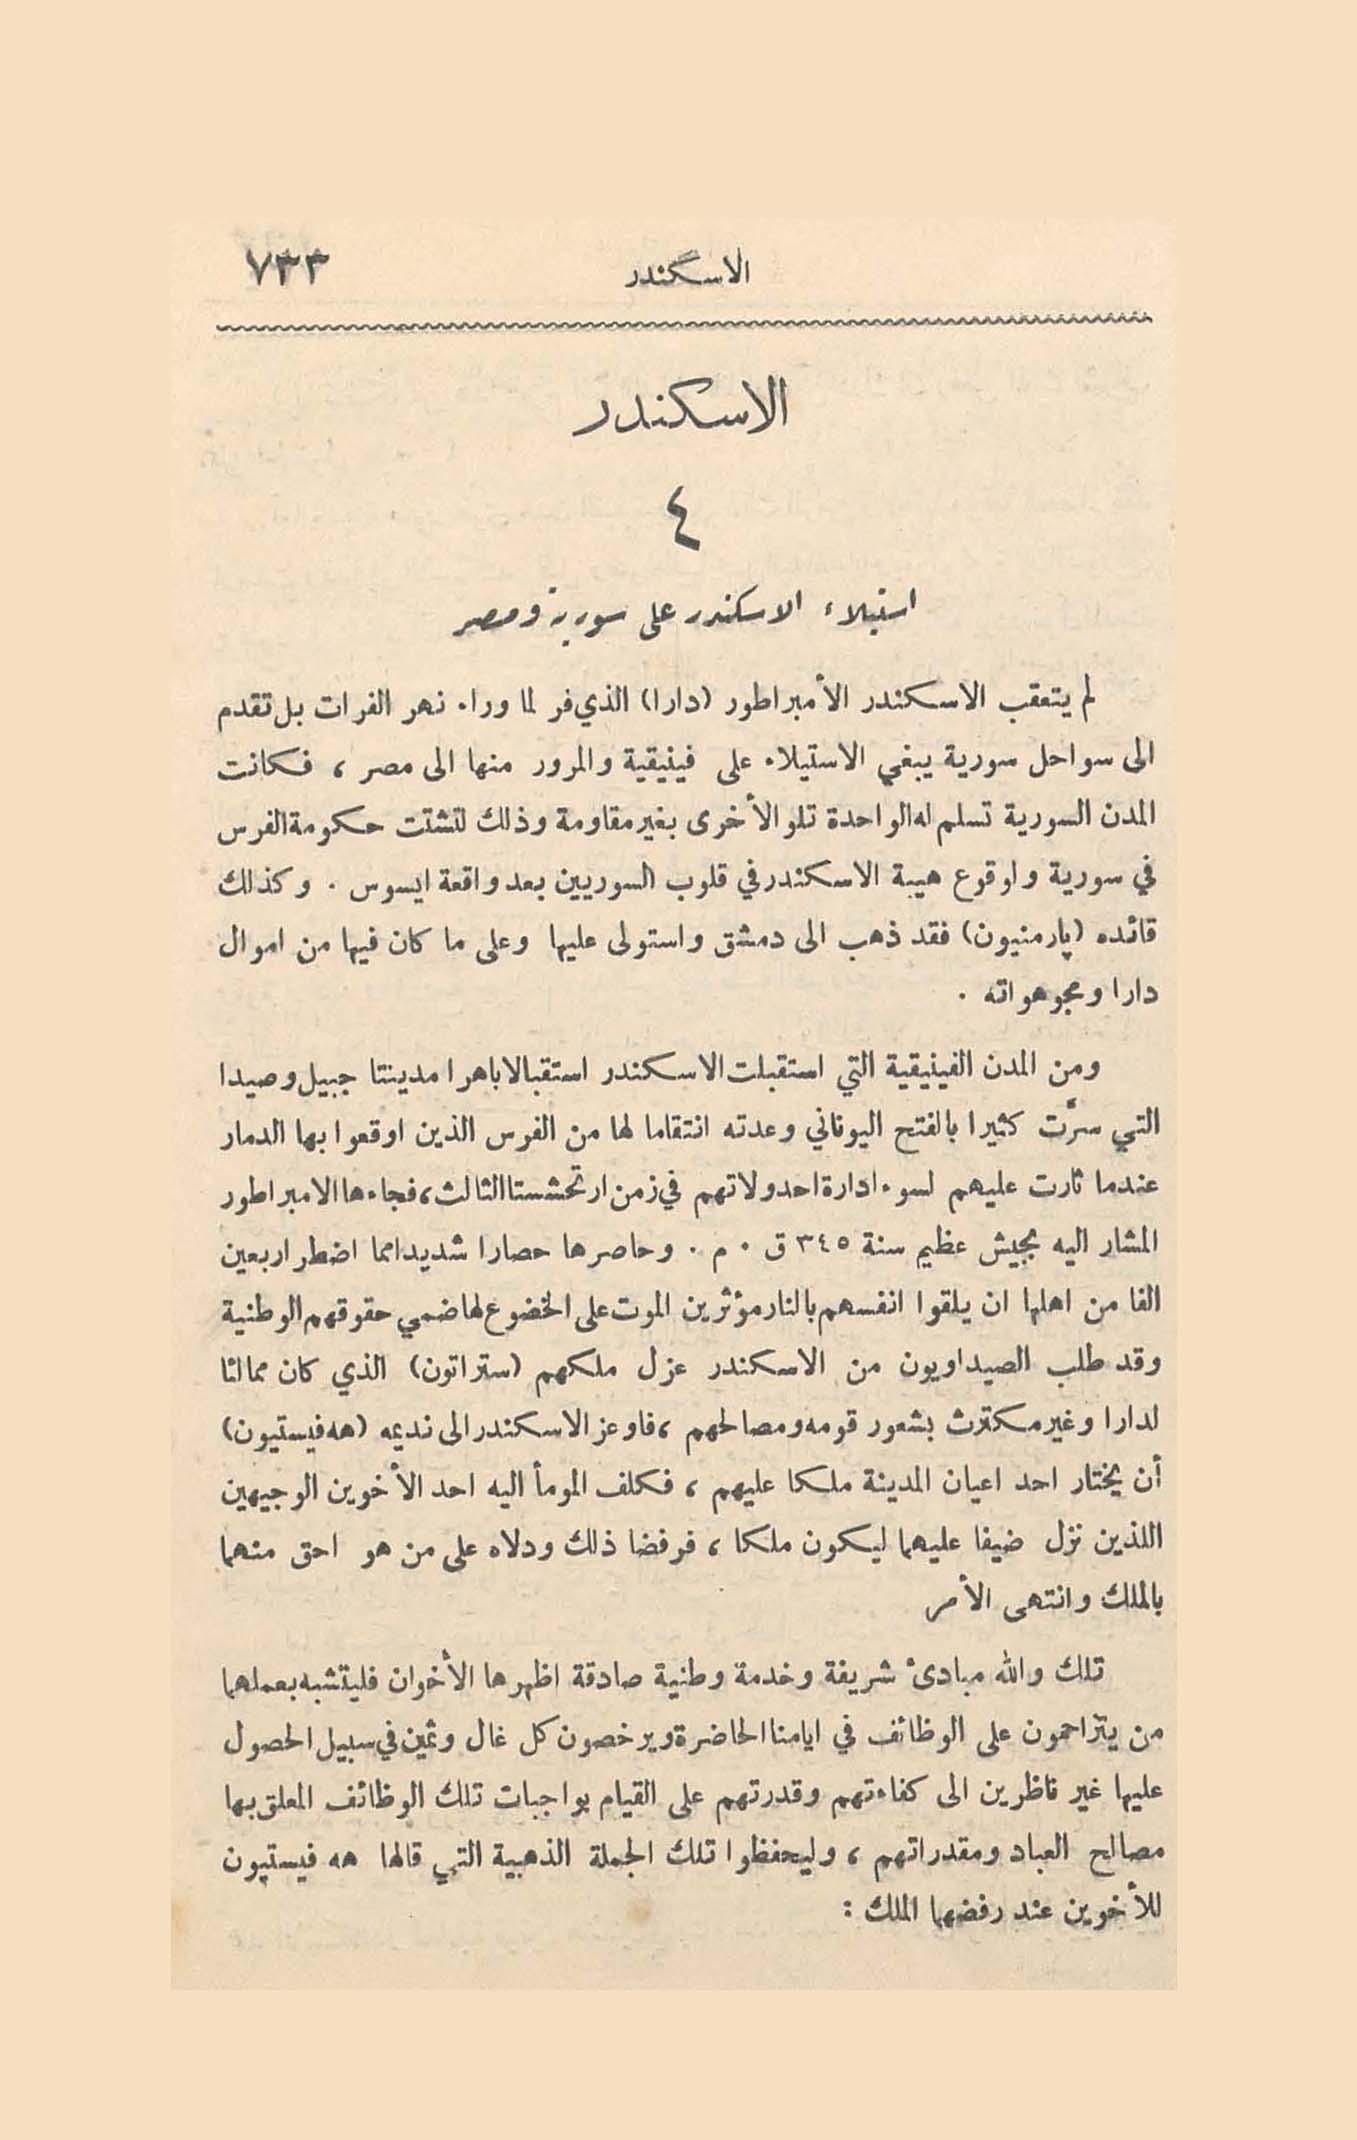 الاسكندر ٧٣٣
الاسكندر
٤
استيلاء الاسكندر على سورية ومصر
لم يتعقب الاسكندر الأمبراطور (دارا) الذي فر لما وراء نهر الفرات بل تقدم
الى سواحل سورية يبغي الاستيلاء على فينيقية والمرور منها الى مصر ، فكانت
المدن السورية تسلم له الواحدة تلو الأخرى بغير مقاومة وذلك لتشتت حكومة الفرس
في سورية ولوقوع هيبة الاسكندر في قلوب السوريين بعد واقعة ايسوس . وكذلك
قائده (پارمنيون) فقد ذهب الى دمشق واستولى عليها وعلى ما كان فيها من اموال
دارا ومجوهواته .
ومن المدن الفينيقية التي استقبلت الاسكندر استقبالا باهرا مدينتا جبيل وصيدا
التي سرَّت كثيرا بالفتح اليوناني وعدته انتقاما لها من الفرس الذين اوقعوا بها الدمار
عندما ثارت عليهم لسوء ادارة احد ولاتهم في زمن ارتحشستا الثالث ، فجاءها الامبراطور
المشار اليه بجيش عظيم سنة ٣٤٥ ق . م . وحاصرها حصارا شديدا مما اضطر اربعين
الفا من اهلها ان يلقوا انفسهم بالنار مؤثرين الموت على الخضوع لهاضمي حقوقهم الوطنية
وقد طلب الصيداويون من الاسكندر عزل ملكهم (ستراتون) الذي كان ممالئا
لدارا وغير مكترث بشعور قومه ومصالحهم ، فاوعز الاسكندر الى نديمه (هه فيستيون)
أن يختار احد اعيان المدينة ملكا عليهم ، فكلف المومأ اليه احد الأخوين الوجيهين
اللذين نزل ضيفا عليهما ليكون ملكا ، فرفضا ذلك ودلاه على من هو احق منهما
بالملك وانتهى الأمر
تلك والله مبادئ شريفة وخدمة وطنية صادقة اظهرها الأخوان فليتشبه بعملهما
من يتزاحمون على الوظائف في ايامنا الحاضرة ويرخصون كل غال وثمين في سبيل الحصول
عليها غير ناظرين الى كفاءتهم وقدرتهم على القيام بواجبات تلك الوظائف المعلق بها
مصالح العباد ومقدراتهم ، وليحفظوا تلك الجملة الذهبية التي قالها هه فيستيون
للأخوين عند رفضهما الملك :